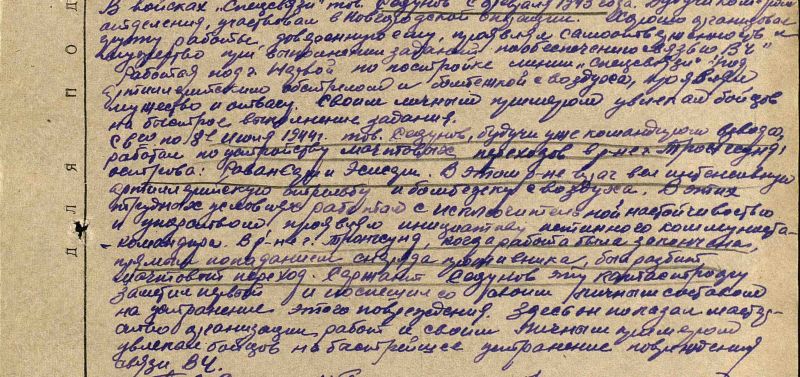 В войсках "Спецсвязи" тов. Седунов с февраля 1943 года. Будучи команд.
отделения, участвовал в Новгородской операции. Хорошо организовал
группу работы, доверенную ему, проявлял самоотверженность и
мужество при выполнении задания по обеспечению связью ВЧ"
Работая под г. Нарвой по постройке линии "Спецсвязи" под
артиллерийским обстрелом и бомбежкой с воздуха, проявлял
мужество и отвагу. Своим личным примером увлекал бойцов
на быстрое выполнение задания.
С по 8е Июля 1944г. тов. Седунов, будучи уже командиром взвода,
работал по устройству мачтовых переходов в р-не г. Тронгсунд,
острова: Раван-Сари и Эсисари. В этом р-не враг вел интенсивную
артиллерийскую стрельбу и бомбежку с воздуха. В этих
трудных условиях работал с исключительной настойчивостью
и упорством, проявлял инициативу истинного коммуниста-
командира. В р-не г. Тронгсунд, когда работа была закончена,
прямым попаданием снаряда противника, был разбит
мачтовый переход. Сержант Седунов эту катастрофу
заметил первый и поспешил со своим личным составом
на устранение этого повреждения. Здесь он показал мастер-
ство организации работ и своим личным примером
увлекал бойцов на быстрейшее устранение повреждения
связи ВЧ.
ДЛЯ ПОД